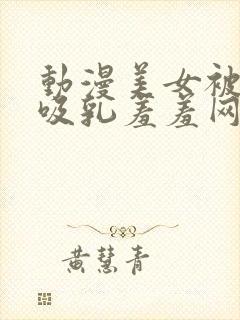 動漫美女被
吸乳羞羞网
黄慧青